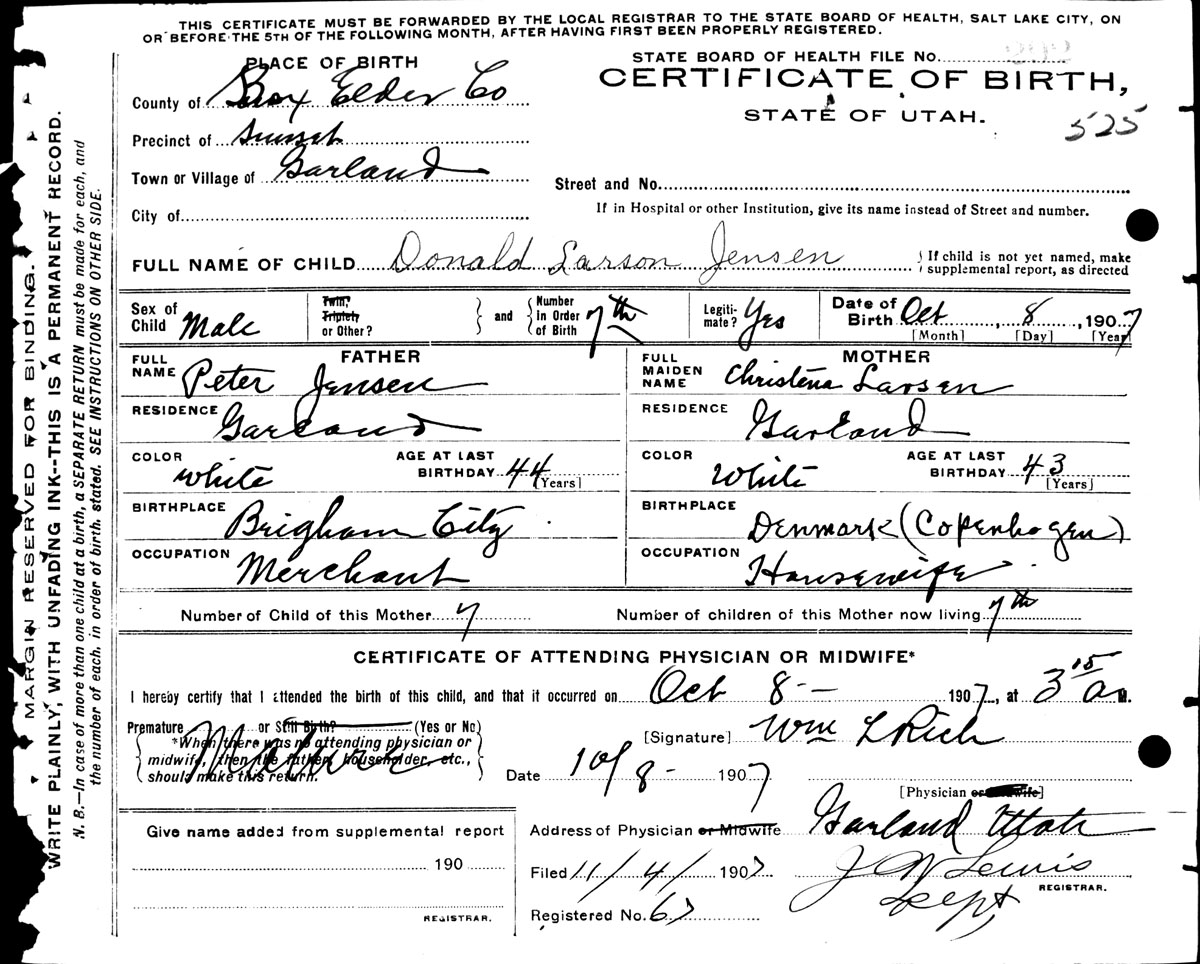 THIS CERTIFICATE MUST BE FORWARDED BY THE LOCAL REGISTRAR TO THE STATE BOARD OF HEALTH, SALT LAKE CITY, ON
OR BEFORE THE 5TH OF THE FOLLOWING MONTH, AFTER HAVING FIRST BEEN PROPERLY REGISTERED.
PLACE OF BIRTH
STATE BOARD OF HEALTH FILE No.
County of Box Elder Co
CERTIFICATE OF BIRTH,
STATE OF UTAH.
525
Precinct of Sunset
Town or Village of Garland
Street and No.
City of
If in Hospital or other Institution, give its name instead of Street and number.
FULL NAME OF CHILD Donald Larson Jensen
If child is not yet named, make
supplemental report, as directed
Sex of Child Male
Twin? Triplet? or Other?
and
Number In Order of Birth 7th
Legiti-mate? Yes
Date of Birth Oct 8, 1907
[Month] [Day] [Year]
FATHER
MOTHER
FULL NAME Peter Jensen
FULL MAIDEN NAME Christena Larsen
RESIDENCE Garland
RESIDENCE Garland
COLOR White
AGE AT LAST BIRTHDAY 44 [Years]
COLOR White
AGE AT LAST BIRTHDAY 43 [Years]
BIRTHPLACE Brigham City
BIRTHPLACE Denmark (Copenhagen)
OCCUPATION Merchant
OCCUPATION Housewife
Number of Child of this Mother 7
Number of children of this Mother now living 7th
CERTIFICATE OF ATTENDING PHYSICIAN OR MIDWIFE*
I hereby certify that I attended the birth of this child, and that it occurred on Oct 8 - 1907, at 3 15 a M.
Premature or Still Birth? (Yes or No)
Mature
*When there was no attending physician or
midwife, then the father, householder, etc.,
should make this return.
[Signature] Wm L Rich
Date 10/8 - 1907
[Physician or Midwife]
Give name added from supplemental report
190
REGISTRAR.
Address of Physician or Midwife Garland Utah
Filed 11/4/1907
J W Lewis
REGISTRAR.
Dept,
Registered No. 67
MARGIN RESERVED FOR BINDING.
WRITE PLAINLY, WITH UNFADING INK--THIS IS A PERMANENT RECORD.
N. B.—In case of more than one child at a birth, a SEPARATE RETURN must be made for each, and
the number of each, in order of birth, stated. SEE INSTRUCTIONS ON OTHER SIDE.